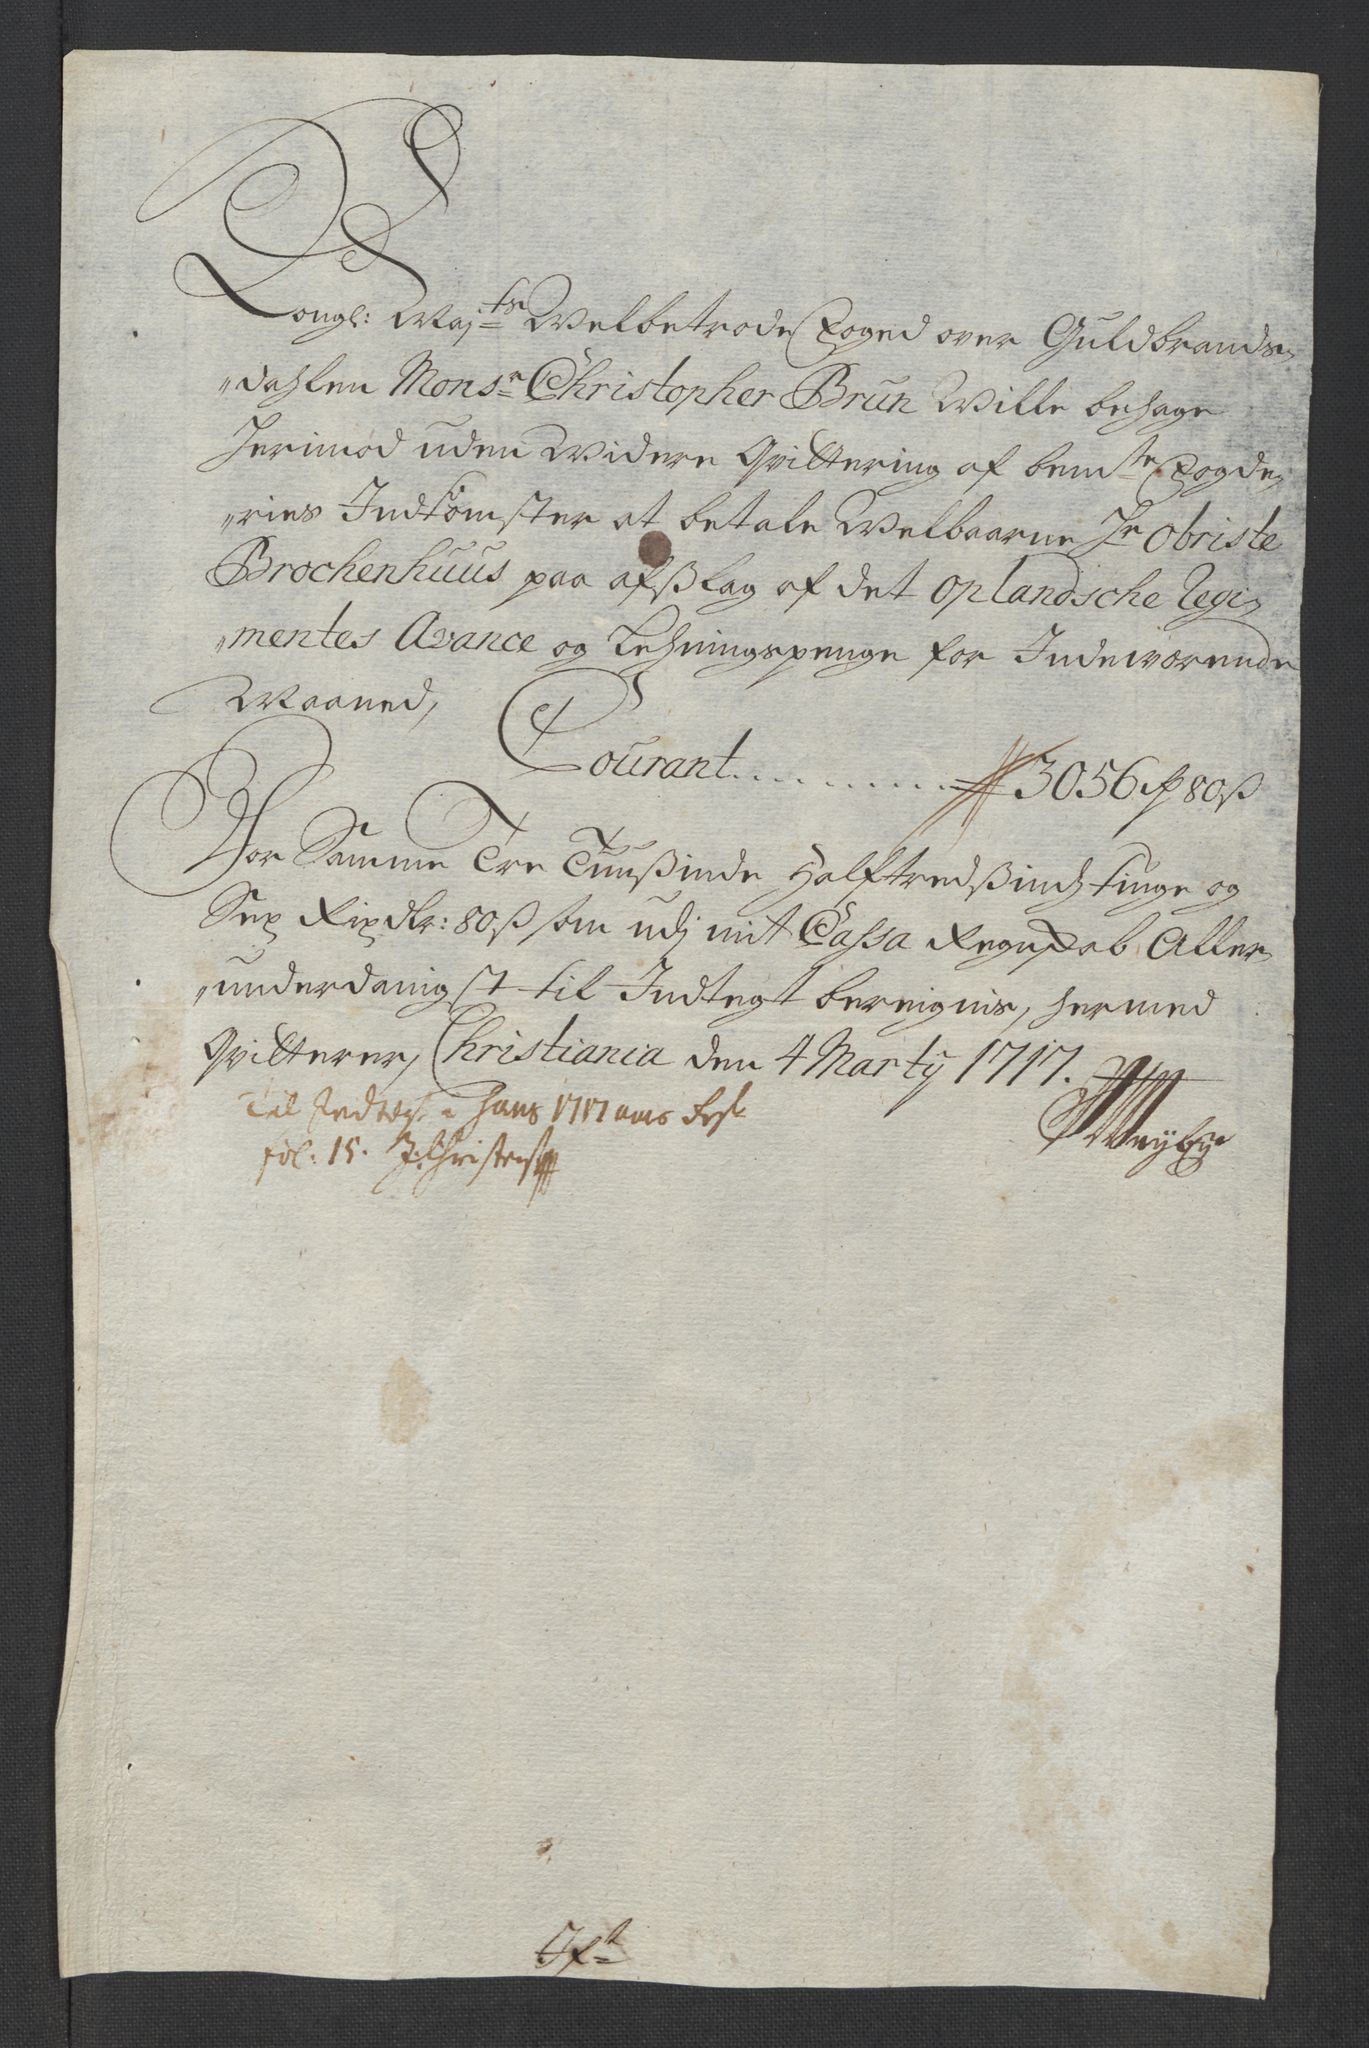 Kongl: Maj:ts Welbetrode Foged over Guldbrands-
dahlen Monsr Christopher Brun Wille behage
herimod uden Widere Qvittering af bemte Fogde-
ries Indkomster at betale Welbaarne Hr Obriste
Brochenhuus paa afslag af det Oplandsche Regi-
mentes Avance og Lehningspenge for Indeværende
Maaned,
Courant ........ 3056 rd 80 ß
For Samme Tre Tuusinde Halftredsindstiuge og
Sex Rixdlr: 80 ß som udj mit Cassa Regnskab Aller-
underdanigst til Indtegt beregnis, hermed
Qvitterer, Christiania den 4 Marty 1717.
Til Indtægt i hans 1717 aars
fol: 15. J: Christens